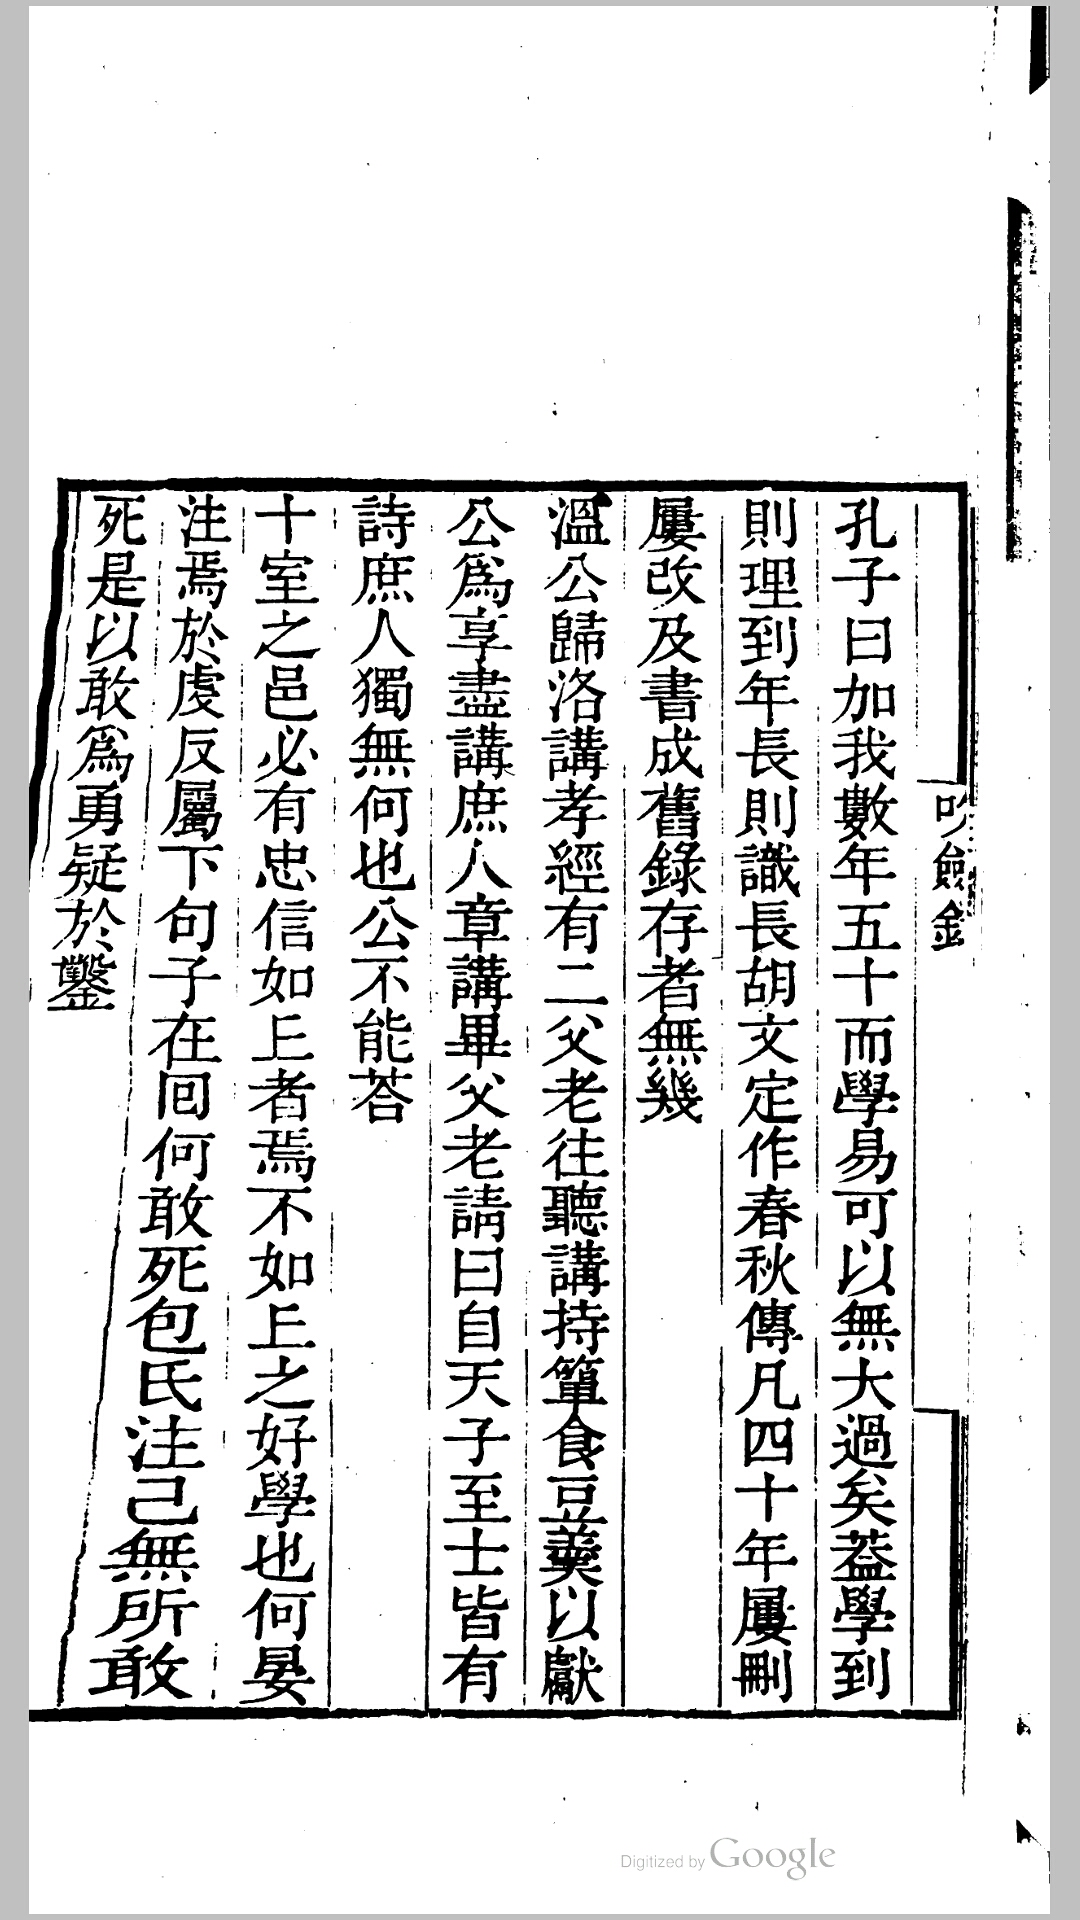 吹劍金
孔子曰加我數年五十而學易可以無大過矣葢學到
則理到年長則識長胡文定作春秋傳凡四十年屢刪
屢改及書成舊錄存者無幾
溫公歸洛講孝經有二父老往聽講持簞食豆羹以獻
公爲享盡講庶人章講畢父老請曰自天子至士皆有
詩庶人獨無何也公不能荅
十室之邑必有忠信如上者焉不如上之好學也何晏
注焉於虔反屬下句子在回何敢死包氏注己無所敢
死是以敢爲勇疑於鑿
Digitized by Google